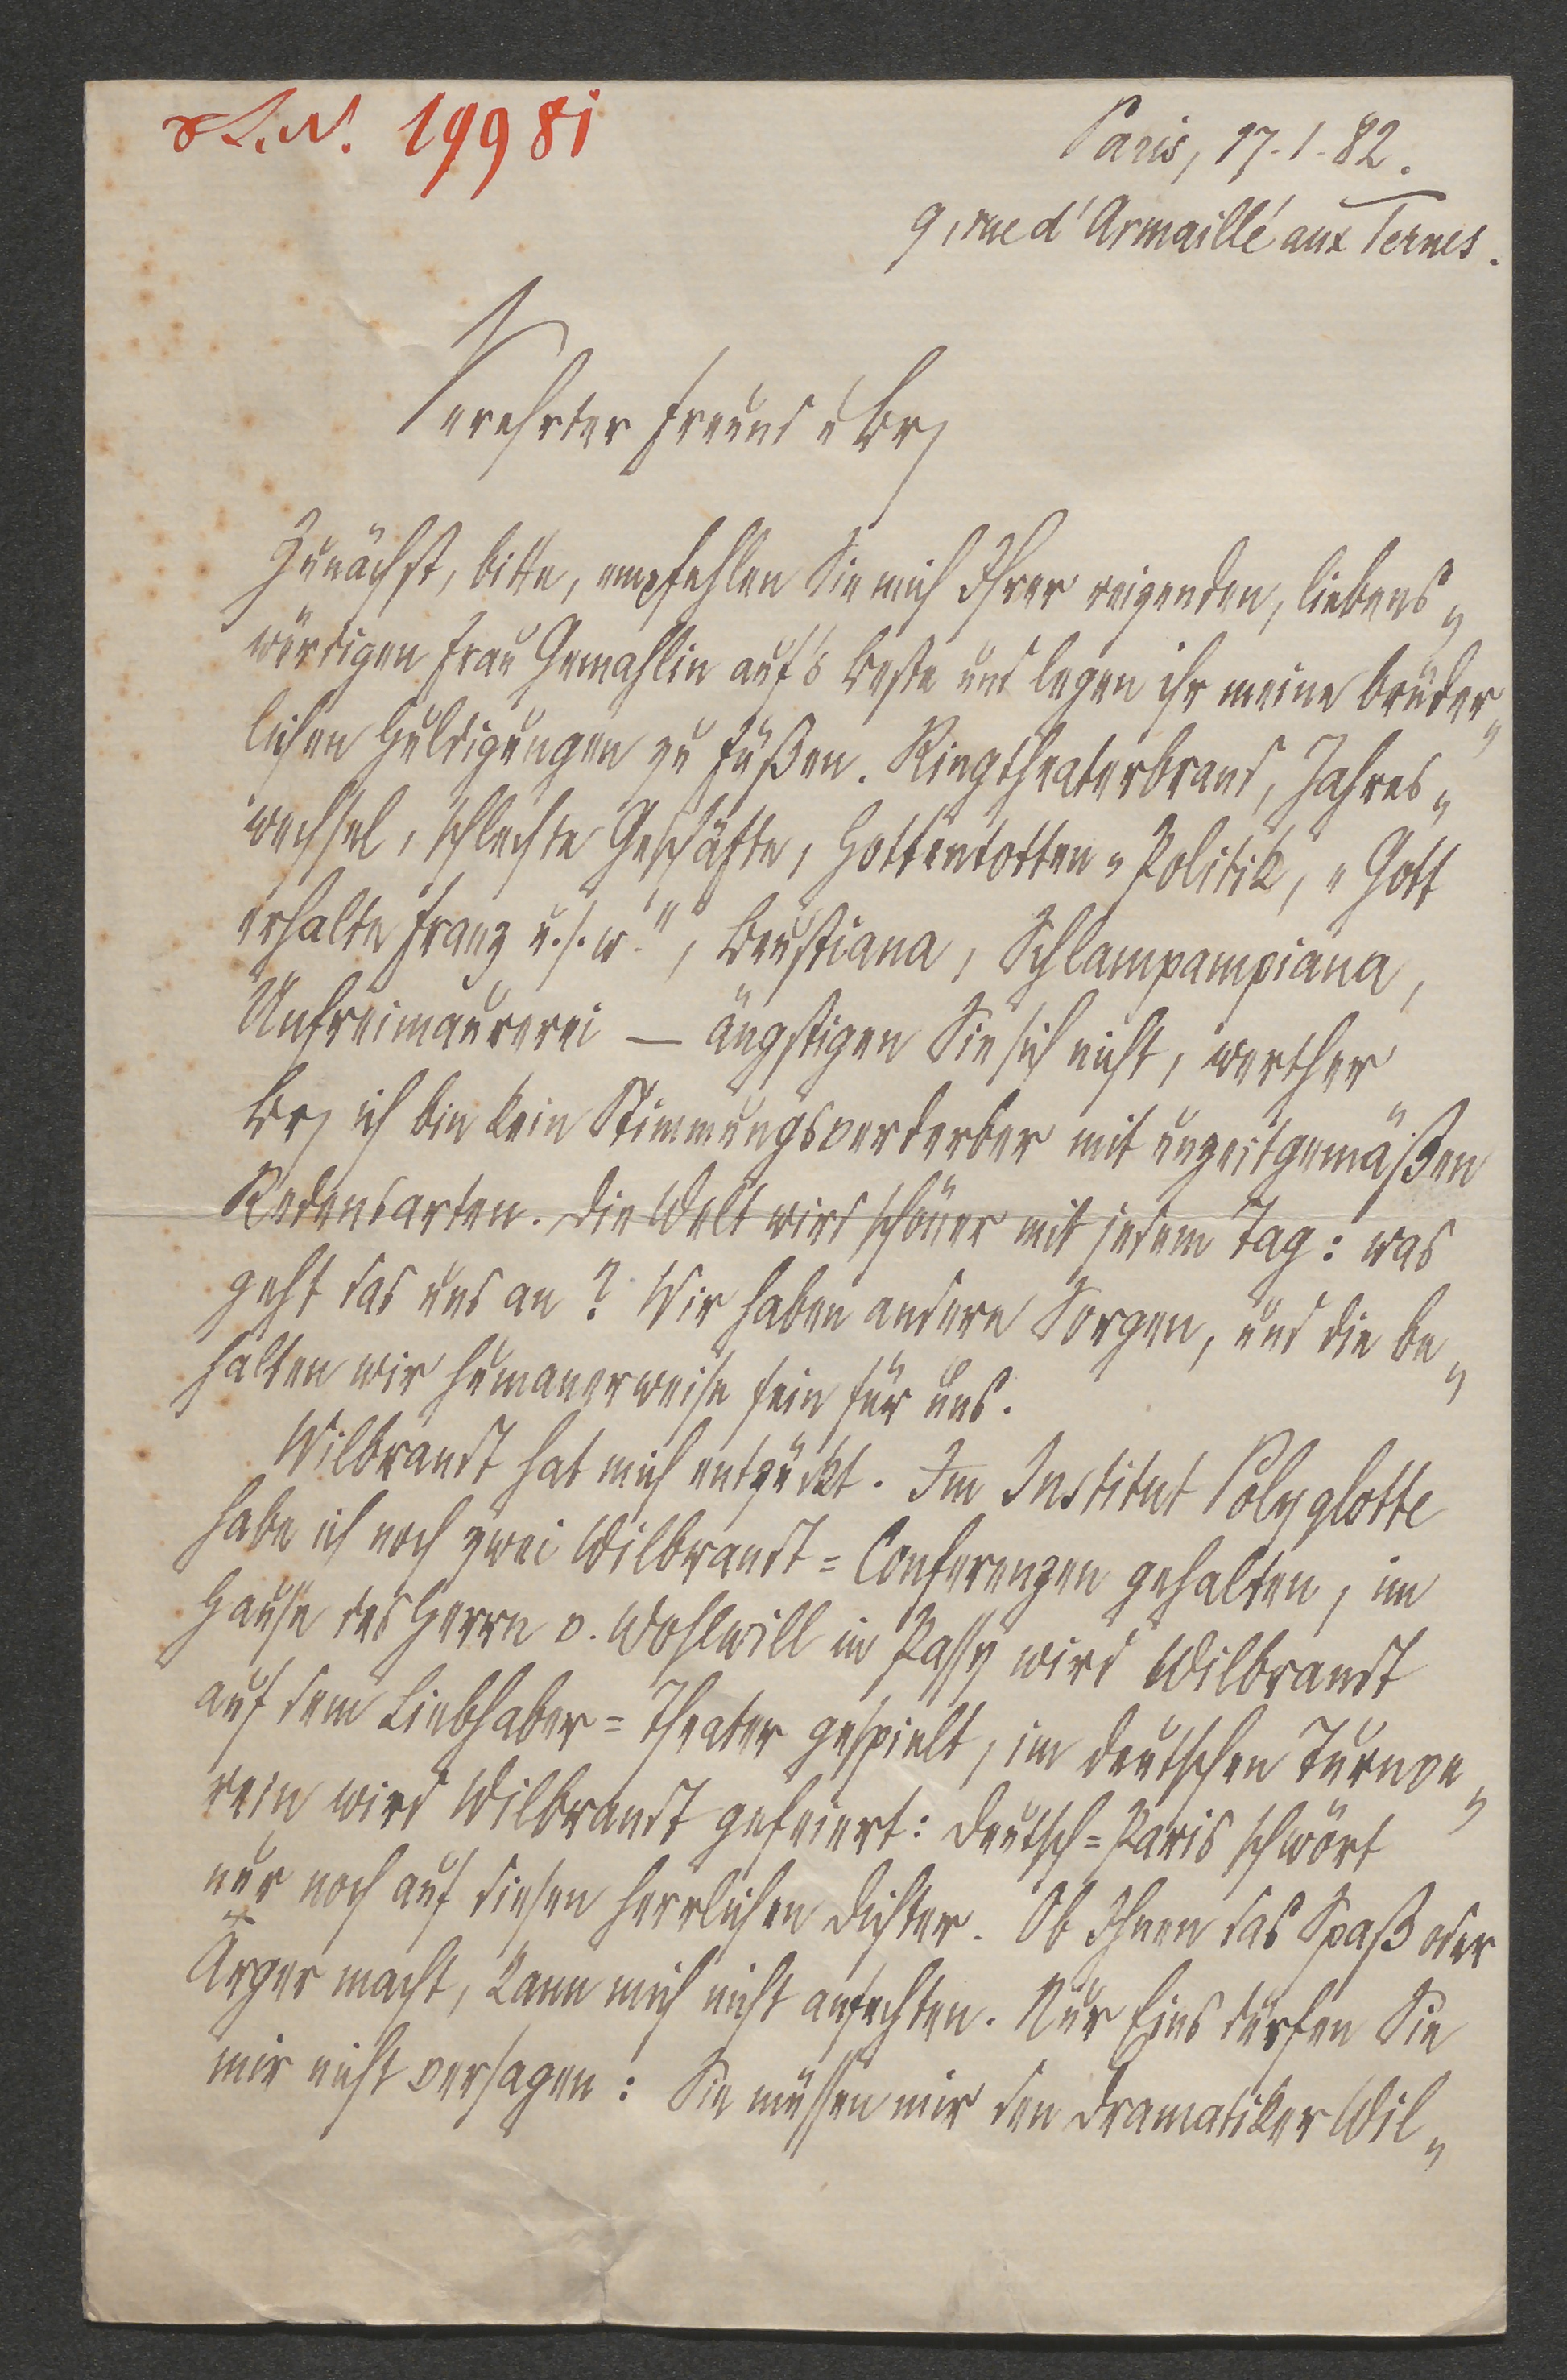 I.N. 19981
Paris, 17.1.82.
9, rue d'Armaillé aux Ternes.
Verehrter Freund u Br
Zunächst, bitte, empfehlen Sie mich Ihrer reizenden, liebens„
würdigen Frau Gemahlin auf's Beste und legen ihr meine brüder„
lichen Huldigungen zu Füßen. Ringtheaterbrand, Jahres„
wechsel, schlechte Geschäfte, Hottentotten„Politik, „Gott
erhalte Franz u.s.w.", Beustiana, Schlampampiana,
Unfreimaurerei — ängstigen Sie sich nicht, werther
Br, ich bin kein Stimmungsverderber mit unzeitgemäßen
Redensarten. Die Welt wird schöner mit jedem Tag: was
geht das uns an? Wir haben andere Sorgen, und die be„
halten wir humanerweise fein für uns.
Wilbrandt hat mich entzückt. Im Institut Polyglotte
habe ich noch zwei Wilbrandt=Conferenzen gehalten, im
Hause des Herrn v. Wohlwill in Passy wird Wilbrandt
auf dem Liebhaber=Theater gespielt, im deutschen Turnve„
rein wird Wilbrandt gefeiert: Deutsch=Paris schwört
nur noch auf diesen herrlichen Dichter. Ob Ihnen das Spaß oder
Ärger macht, kann mich nicht anfechten. Nur Eins dürfen Sie
mir nicht versagen: Sie müssen mir den Dramatiker Wil„